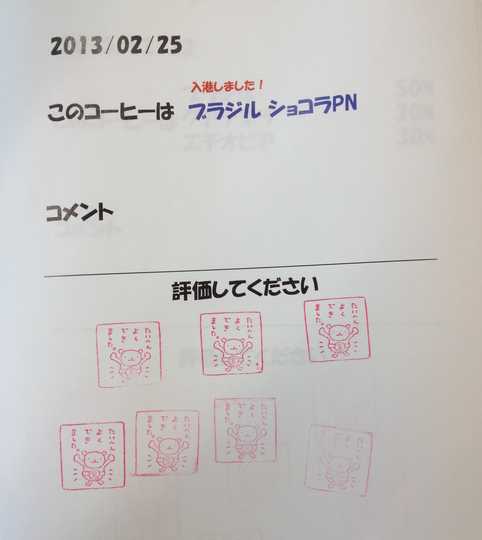 2013/02/25
入港しました!
このコーヒーは ブラジル ショコラPN
コメント
評価してください
たいへん
よく
でき
ました。
たいへん
よく
でき
ました。
たいへん
よく
でき
ました。
たいへん
よく
でき
ました。
たいへん
よく
でき
ました。
たいへん
よく
でき
ました。
たいへん
よく
でき
ました。